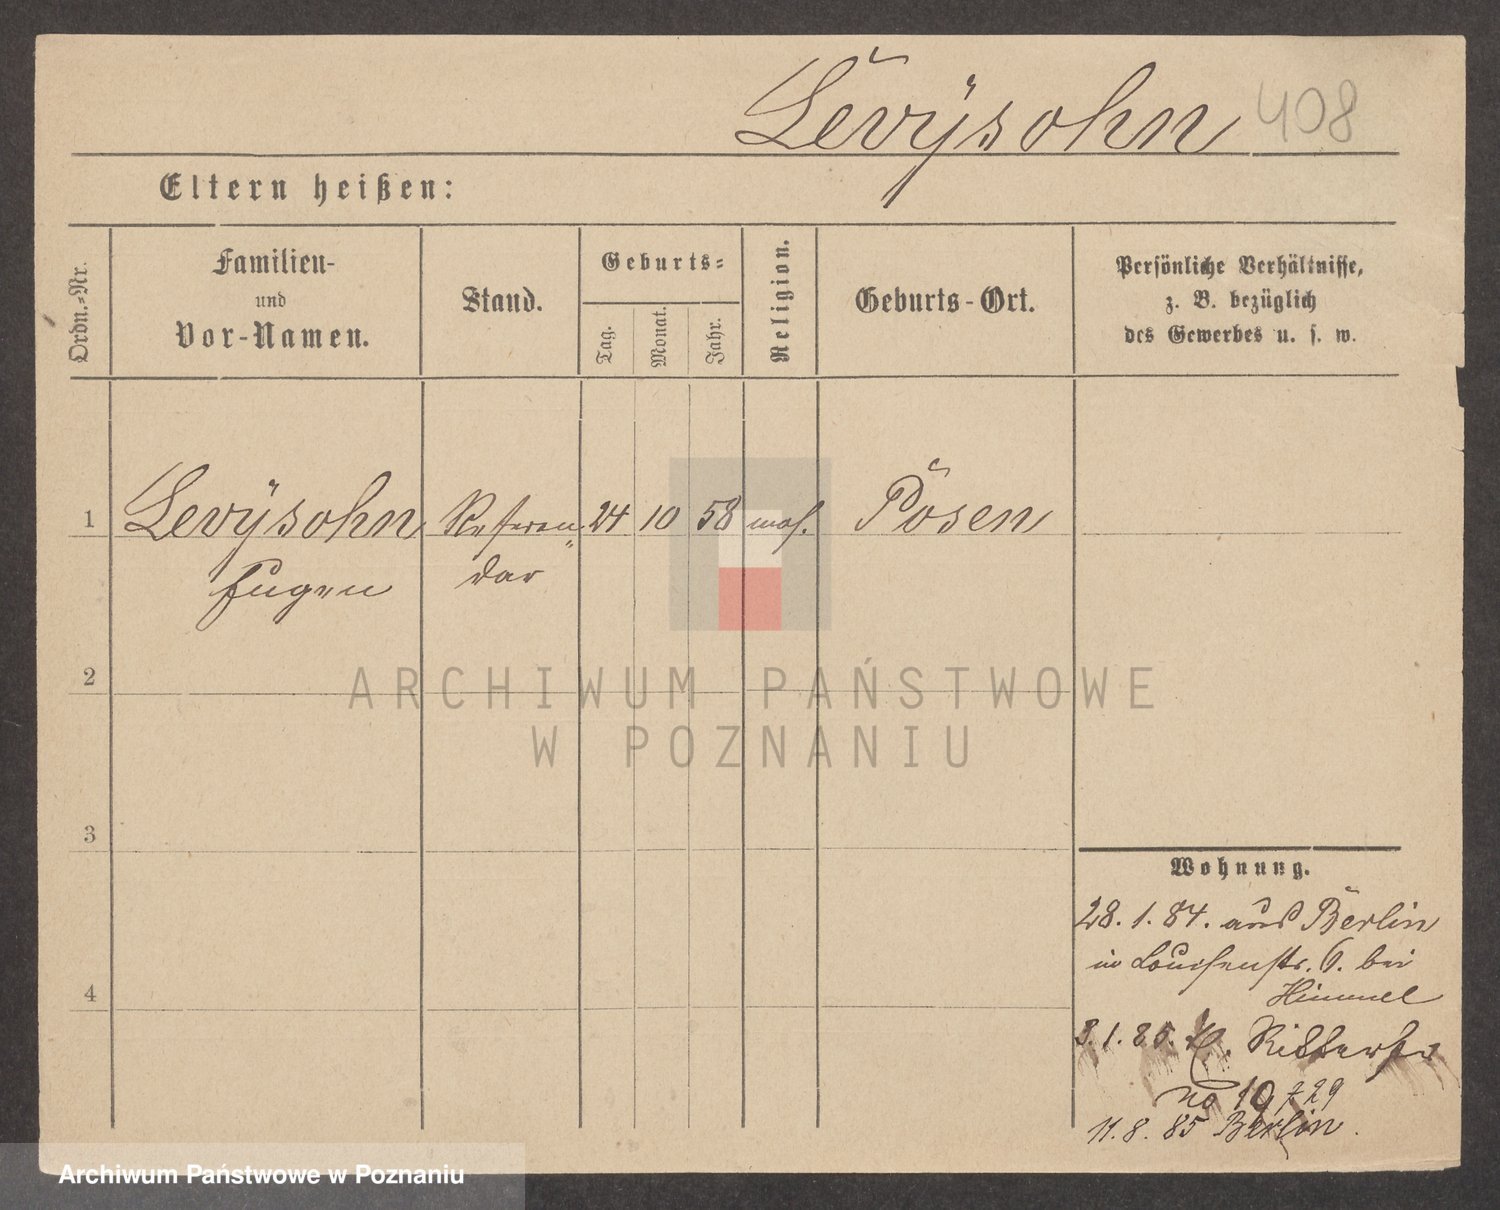 Levÿsohn 408
Eltern heißen:
Ordn.-Nr.
Familien-
und
Vor-Namen.
Stand.
Geburts-
Tag.
Monat.
Jahr.
Religion.
Geburts-Ort.
Persönliche Verhältnisse,
z. B. bezüglich
des Gewerbes u. s. w.
1 Levÿsohn Referen 24 10 58 mos. Posen
Eugen dar
2
ARCHIWUM PAŃSTWOWE
W POZNANIU
3
4
Wohnung.
28. 1. 84. aus Berlin
in Louisenstr. 6. bei
Himmel
3. 1. 85. Ritterstr
no 19
11. 8. 85 Berlin.
Archiwum Państwowe w Poznaniu